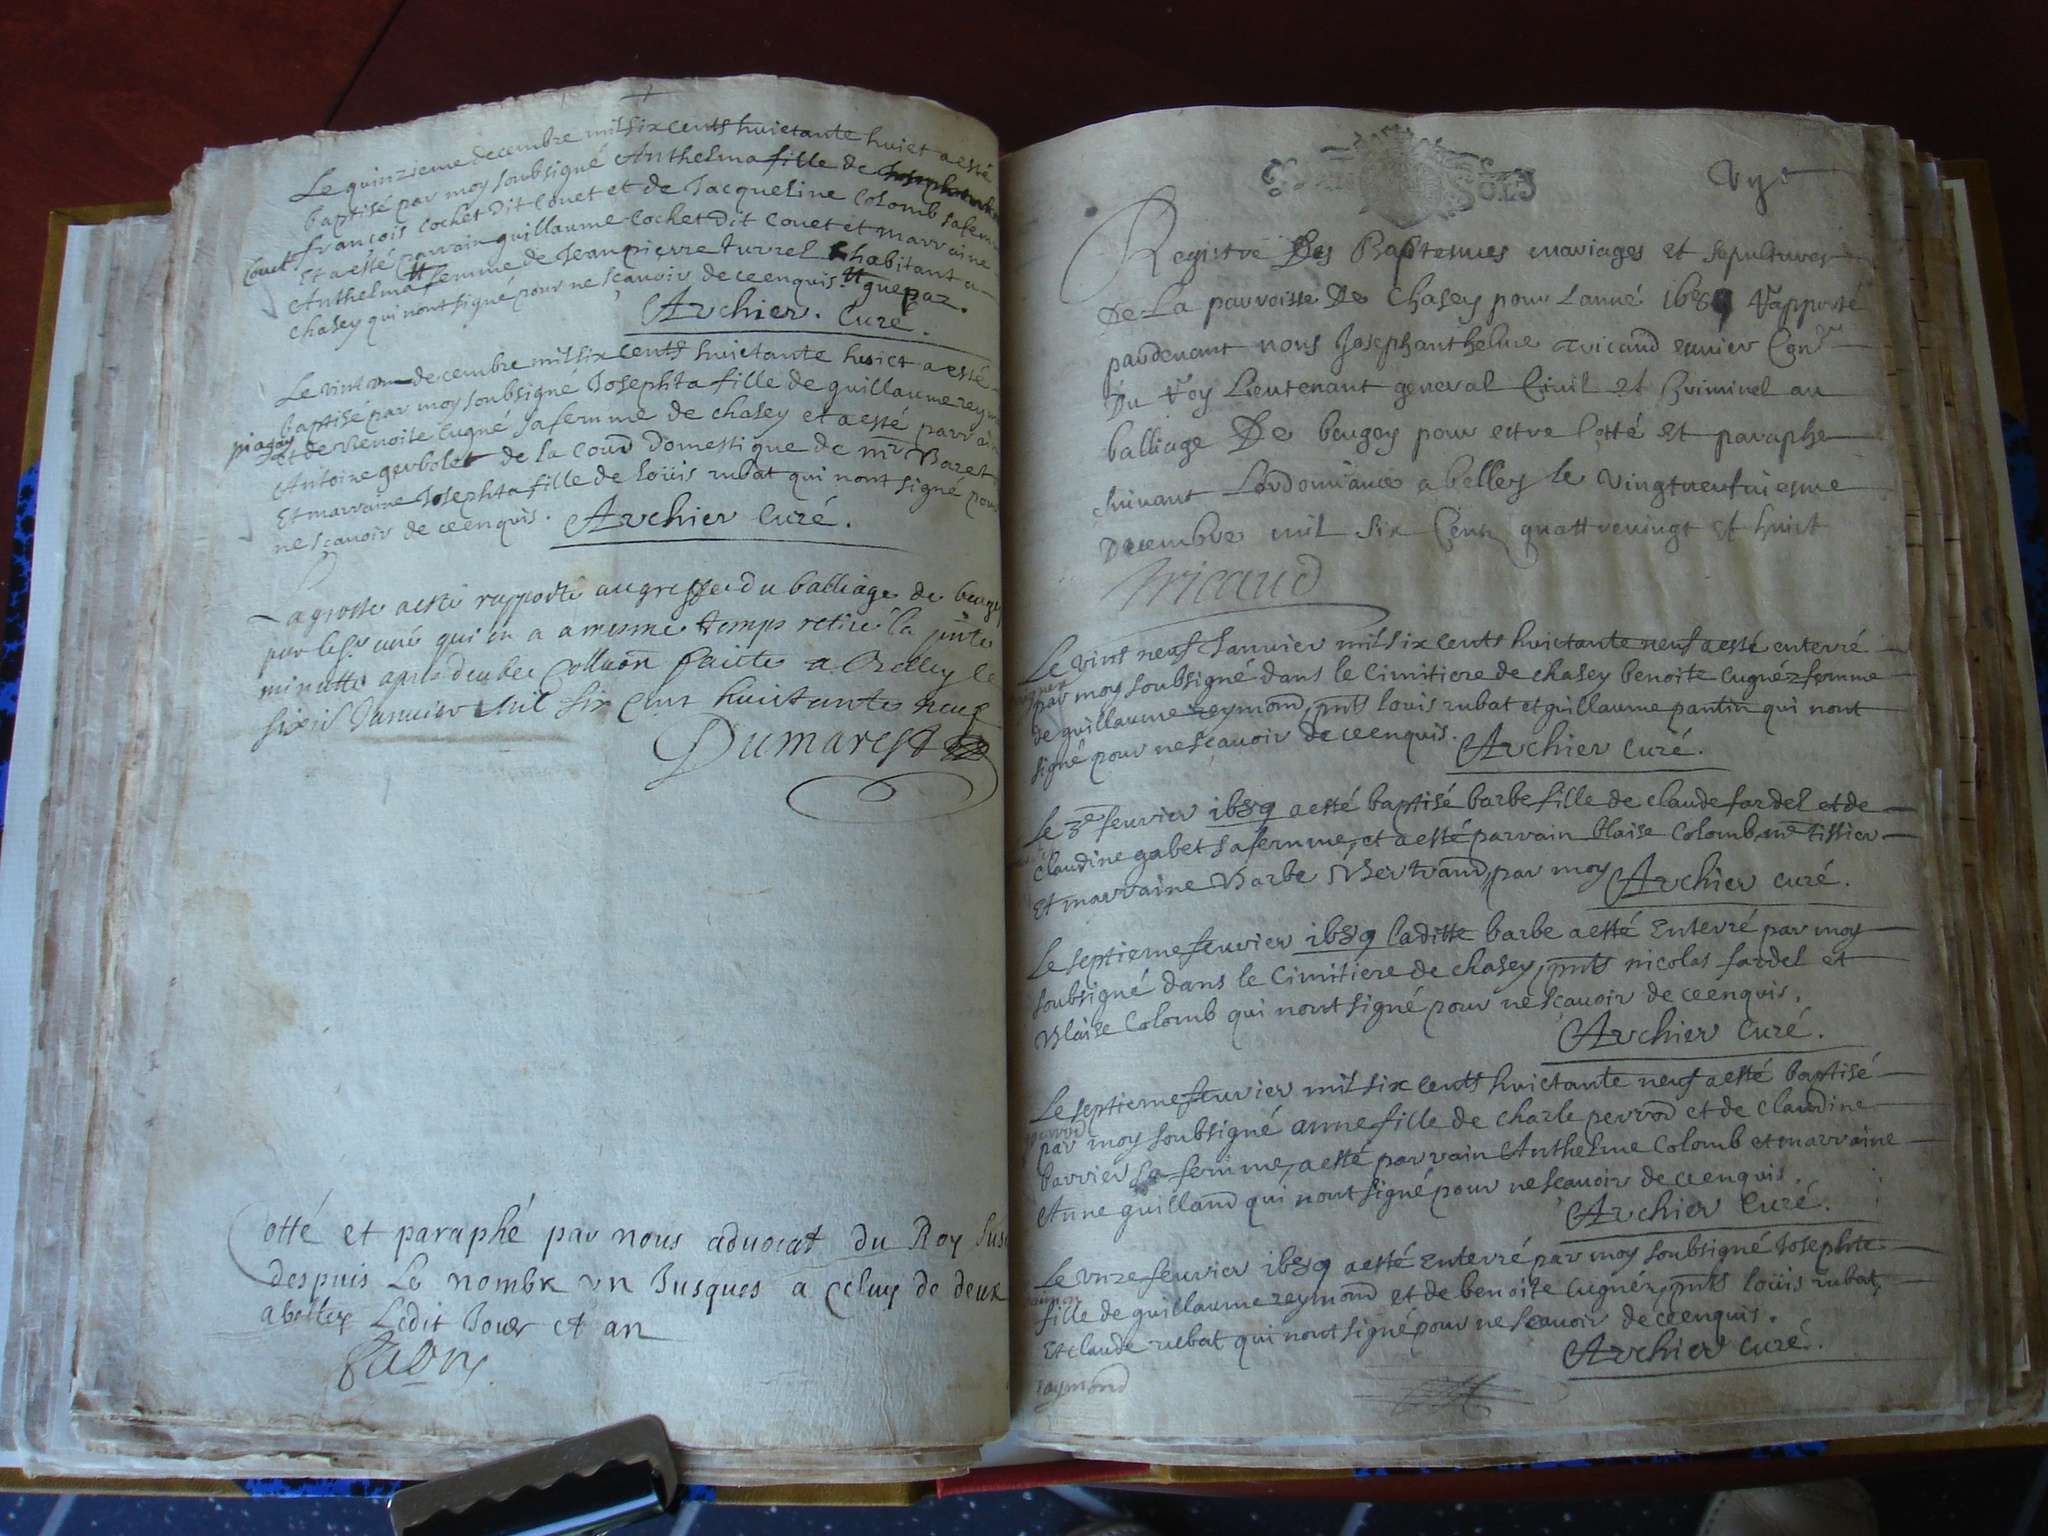 Le quinzieme decembre mil six cents huictante huict a esté
baptisé par moy soubsigné Anthelma fille de
françois Cochet dit Couet et de Jacqueline Colomb sa femme
Couet. Et a esté parrain guillaume Cochet dit Couet et marraine
Anthelma femme de Jean pierre turrel habitant a
chasey qui nont signé pour ne scavoir de ce enquis. # guepaz.
Archier. Curé.
Le vint decembre mil six cents huictante huict a esté
baptisé par moy soubsigné Josephta fille de guillaume reymond
et de Benoite Cugné sa femme de chasey et a esté parrain
Antoine gerbolet de la Coud domestique de mr Baret
Et marraine Josephta fille de loüis rubat qui nont signé pour
ne scavoir de ce enquis. Archier Curé.
La grosse a esté rapporté au greffe du balliage de beugey
par le sr curé qui en a a mesme temps retiré la pnte
minutte apres deube Colla͠on faitte a Belley le
six Janvier Mil six Cent huictante neuf
Dumarest
Cotté et paraphé par nous aduocat du Roy sus
despuis Le nombre un Jusques a Celuy de deux
a belley Ledit Jour et an
SOLS
Registre Des Baptesmes mariages et sepultures
De La parroisse De Chasey pour Lanné 1689 Rapporté
pardenant nous Josephanthelme Tricaud escuier Con.er
Du Roy Lieutenant general Civil et Criminel au
balliage De beugey pour estre Cotté et paraphe
suivant Lordonnance a belley le vingtneufuiesme
Decembre mil six Cent quattreuingt et huict
Tricaud
Le vint neuf Janvier mil six cents huictante neuf a esté enterré
par moy soubsigné dans le Cimitiere de chasey benoite Cugnéz femme
de guillaume reymond, pnts louis rubat et guillaume pantin qui nont
signé pour ne scavoir de ce enquis. Archier Curé.
Le 3e feuvier 1689 a esté baptisé barbe fille de claude fardel et de
Claudine gabet sa femme, et a esté parrain blaise Colomb me tissier
Et marraine Barbe Bertrand, par moy Archier Curé.
Le septieme feuvier 1689 laditte barbe a esté Enterré par moy
soubsigné dans le Cimitiere de chasey, pnts nicolas fardel et
Blaise Colomb qui nont signé pour ne scavoir de ce enquis.
Archier Curé.
Le septieme feuvier mil six cents huictante neuf a esté baptisé
par moy soubsigné anne fille de Charle perrod et de Claudine
barrier sa femme, a esté parrain Anthelme Colomb et marraine
Anne guilland qui nont signé pour ne scavoir de ce enquis.
Archier Curé.
Le unze feuvier 1689 a esté Enterré par moy soubsigné Josephte
fille de guillaume reymond et de benoite Cugnéz, pnts loüis rubat,
Et claude rubat qui nont signé pour ne scavoir de ce enquis.
Archier Curé.
raymond